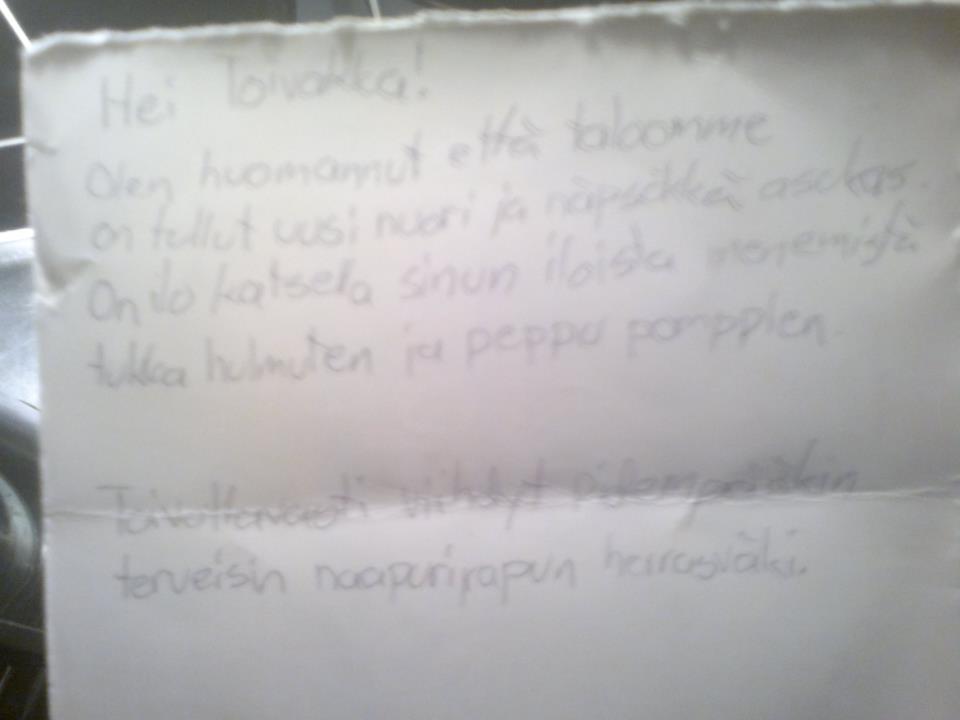 Hei Toivakka!
Olen huomannut että taloomme
on tullut uusi nuori ja näpsäkkä asukas.
On ilo katsella sinun iloista menemistä
tukka hulmuten ja peppu pomppien.
Toivottavasti viihdyt pidempäänkin
terveisin naapurirapun herrasväki.